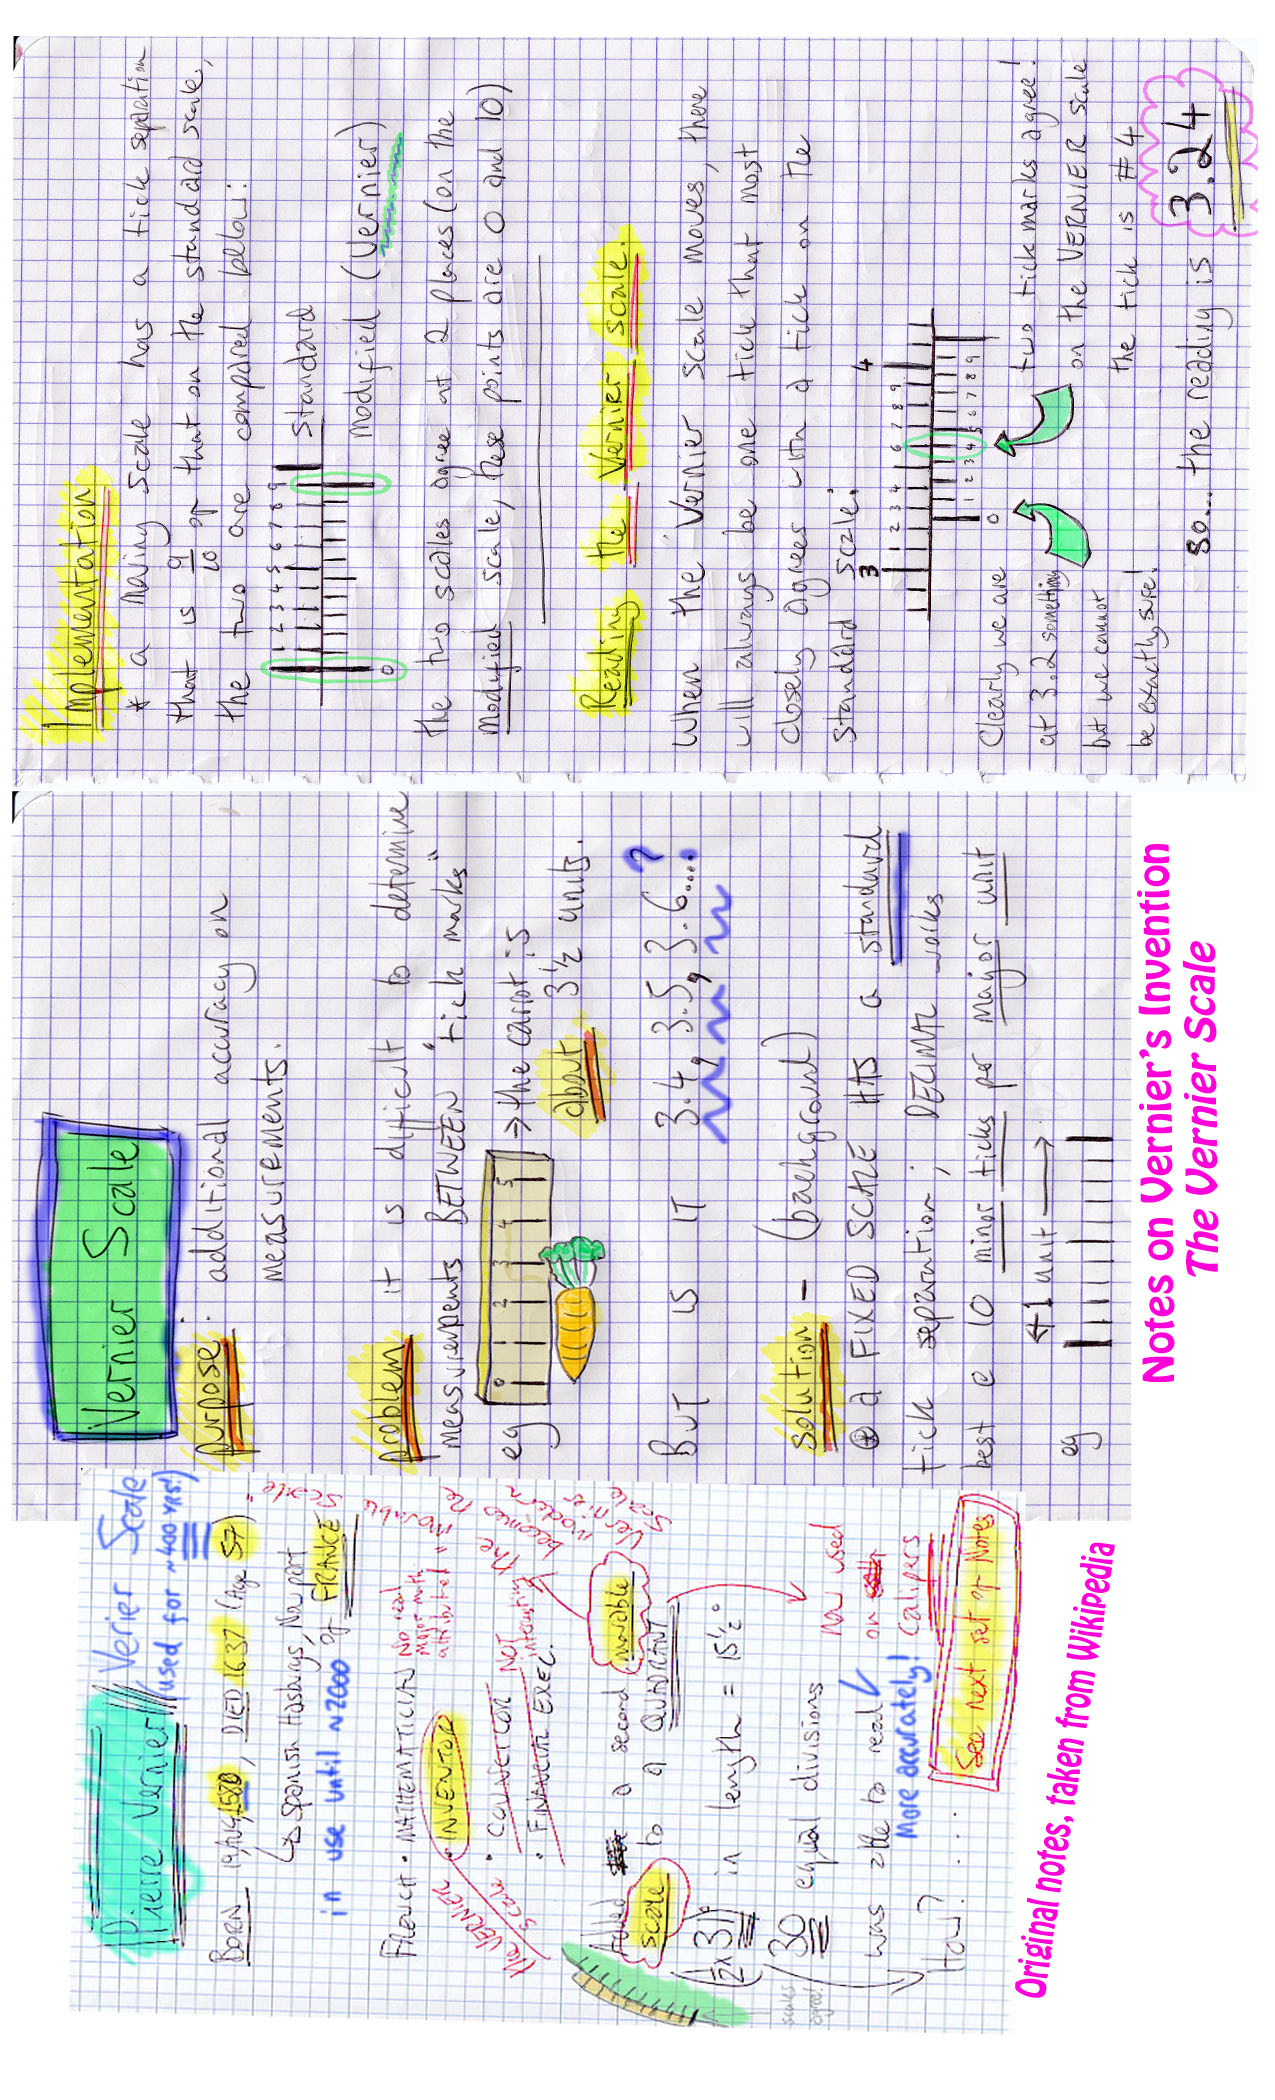 Pierre Vernier
Verier Scale
(used for ~400 YRS!)
BORN 19, AUG, 1580, DIED 1637 (Age 57)
Spanish Hasburgs, Now part
of FRANCE
in use until ~2000
French • MATHEMATICIAN
No real
major math
attributed
• INVENTOR
the VERNIER
scale
• COUNCILOR
• FINANCIAL EXEC.
NOT
interesting
Added a second movable
scale to a QUADRANT
the "movable scale"
becomes the
modern
Vernier
Scale
(1/2 x 31° in length = 15 1/2°
30 equal divisions
scales
agree!
was able to read
More accurately!
How? . . . .
Now used
on
calipers
See next set of Notes
Original notes, taken from Wikipedia
Vernier Scale
purpose: additional accuracy on
measurements.
problem it is difficult to determine
measurements BETWEEN "tick marks"
eg
0 1 2 3 4 5
→ the carrot is
about 3 1/2 units.
BUT IS IT 3.4, 3.5, 3.6....?
Solution - (background)
a FIXED SCALE HAS a standard
tick separation; DECIMAL works
best @ 10 minor ticks per major unit
eg
1 unit
Notes on Vernier's Invention
The Vernier Scale
Implementation
* a moving scale has a tick separation
that is 9/10 of that on the standard scale,
the two are compared below:
1 2 3 4 5 6 7 8 9
Standard
0
modified (Vernier)
the two scales agree at 2 places (on the
modified scale, these points are 0 and 10)
Reading the Vernier scale.
When the Vernier scale moves, there
will always be one tick that most
closely agrees with a tick on the
standard scale:
3 1 2 3 4 6 7 8 9 4
0 1 2 3 4 5 6 7 8 9
Clearly we are
at 3.2 something
but we cannot
be exactly sure!
two tick marks agree!
on the VERNIER scale
the tick is #4
so... the reading is 3.24